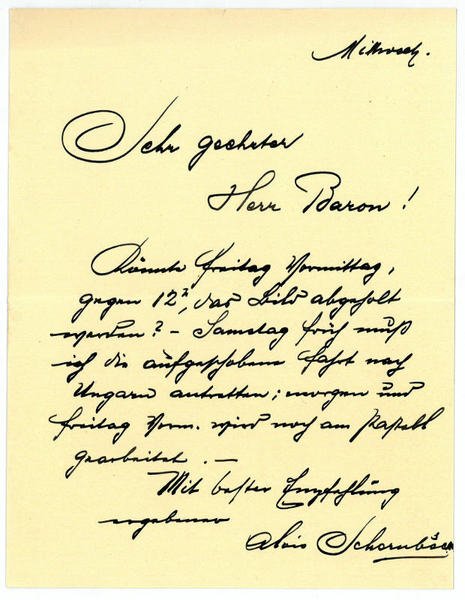 Mittwoch.
Sehr geehrter
Herr Baron!
Könnte Freitag Vormittag,
gegen 12h, das Bild abgeholt
werden? – Samstag früh muß
ich die aufgeschobene Fahrt nach
Ungarn antretten; morgen und
Freitag Vorm. wird noch am Pastell
gearbeitet. –
Mit bester Empfehlung
ergebener
Alois